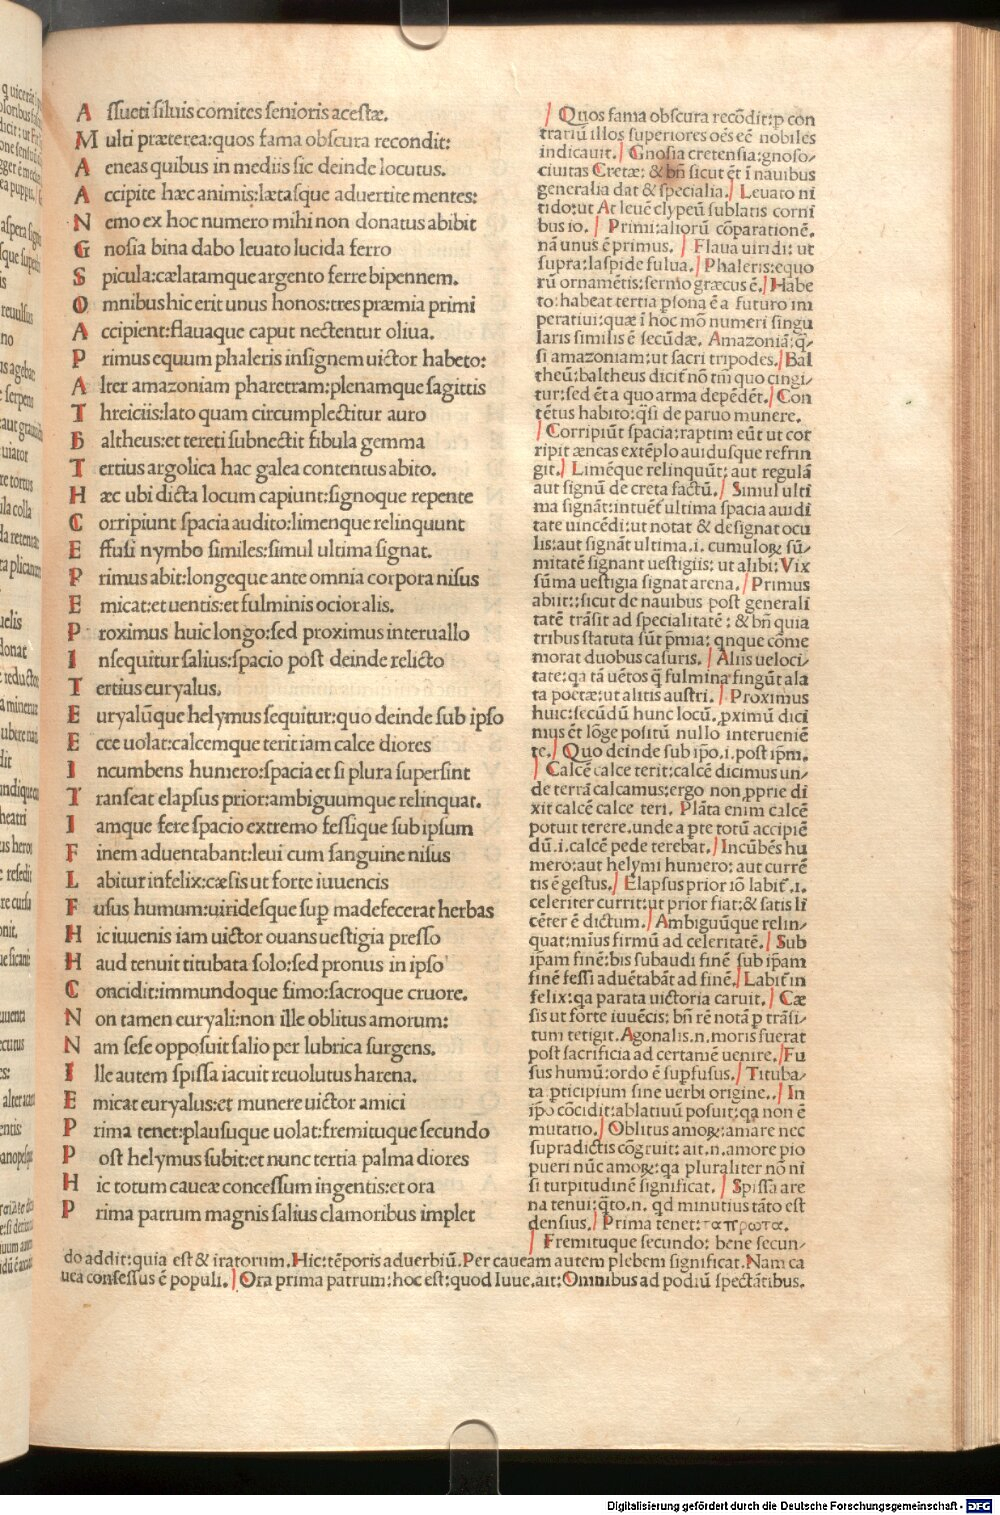 A ssueti siluis comites senioris acestæ.
M ulti præterea:quos fama obscura recondit:
A eneas quibus in mediis sic deinde locutus.
A ccipite hæc animis:lætasque aduertite mentes:
N emo ex hoc numero mihi non donatus abibit
G nosia bina dabo leuato lucida ferro
S picula:cælatamque argento ferre bipennem.
O mnibus hic erit unus honos:tres præmia primi
A ccipient:flauaque caput nectentur oliua.
P rimus equum phaleris insignem uictor habeto:
A lter amazoniam pharetram:plenamque sagittis
T hreiciis:lato quam circumplectitur auro
B altheus:et tereti subnectit fibula gemma
T ertius argolica hac galea contentus abito.
H æc ubi dicta locum capiunt:signoque repente
C orripiunt spacia audito:limenque relinquunt
E ffusi nymbo similes:simul ultima signat.
P rimus abit:longeque ante omnia corpora nisus
E micat:et uentis:et fulminis ocior alis.
P roximus huic longo:sed proximus interuallo
I nsequitur salius:spacio post deinde relicto
T ertius euryalus.
E uryalūque helymus sequitur:quo deinde sub ipso
E cce uolat:calcemque terit iam calce diores
I ncumbens humero:spacia et si plura supersint
T ranseat elapsus prior:ambiguumque relinquat.
I amque fere spacio extremo fessique sub ipsum
F inem aduentabant:leui cum sanguine nisus
L abitur infelix:cæsis ut forte iuuencis
F usus humum:uiridesque suꝑ madefecerat herbas
H ic iuuenis iam uictor ouans uestigia presso
H aud tenuit titubata solo:sed pronus in ipso
C oncidit:immundoque fimo:sacroque cruore.
N on tamen euryali:non ille oblitus amorum:
N am sese opposuit salio per lubrica surgens.
I lle autem spissa iacuit reuolutus harena.
E micat euryalus:et munere uictor amici
P rima tenet:plausuque uolat:fremituque secundo
P ost helymus subit:et nunc tertia palma diores
H ic totum caueæ concessum ingentis:et ora
P rima patrum magnis salius clamoribus implet
Quos fama obscura recōdit:ꝑ con
trariū illos superiores oēs eē nobiles
indicauit. Gnosia cretensia:gnoso
ciuitas Cretæ: & bñ sicut ēt ī nauibus
generalia dat & specialia. Leuato ni
tido:ut At leuē clypeū sublatis corni
bus io. Primi:aliorū cōparationē.
nā unus ē primus. Flaua uiridi: ut
supra:Iaspide fulua. Phaleris:equo
rū ornamētis:sermo græcus ē. Habe
to:habeat tertia ꝑsona ē a futuro im
peratiui:quæ ī hoc mō numeri singu
laris similis ē secūdæ. Amazoniā:q̄
si amazoniam:ut sacri tripodes. Bal
theū:baltheus dicit̄ nō tm̄ quo cingi
tur:sed ēt a quo arma depēdēt. Con
tētus habito:q̄si de paruo munere.
Corripiūt spacia:raptim eūt ut cor
ripit æneas extēplo auidusque refrin
git. Limēque relinquūt: aut regulā
aut signū de creta factū. Simul ulti
ma signāt:intuēt̄ ultima spacia auidi
tate uincēdi:ut notat & designat ocu
lis:aut signāt ultima.i. cumuloꝝ sū
mitatē signant uestigiis: ut alibi: Vix
sūma uestigia signat arena. Primus
abiit:sicut de nauibus post generali
tatē trāsit ad specialitatē: & bñ quia
tribus statuta sūt p̄mia: qnque cōme
morat duobus casuris. Aliis ueloci
tate:qa tā uētos q̄ fulmina fingūt ala
ta poetæ:ut alitis austri. Proximus
huic:secūdū hunc locū, ꝓximū dici
mus ēt lōge positū nullo interueniē
te. Quo deinde sub ip̄o.i.post ip̄m.
Calcē calce terit:calcē dicimus un
de terrā calcamus:ergo non ꝓprie di
xit calcē calce teri. Plāta enim calcē
potuit terere.unde a ꝑte totū accipiē
dū.i.calcē pede terebat. Incūbēs hu
mero:aut helymi humero: aut currē
tis ē gestus. Elapsus prior iō labit̄.i.
celeriter currit:ut prior fiat:& satis li
cēter ē dictum. Ambiguūque relin
quat:mīus firmū ad celeritatē. Sub
ip̄am finē:bis subaudi finē sub ip̄am
finē fessi aduētabāt ad finē. Labit̄ in
felix:qa parata uictoria caruit. Cæ
sis ut forte iuuēcis: bñ rē notā ꝑ trāsi
tum tetigit. Agonalis.n.moris fuerat
post sacrificia ad certamē uenire. Fu
sus humū:ordo ē suꝑfusus. Tituba
ta ꝑticipium sine uerbi origine. In
ip̄o cōcidit:ablatiuū posuit:qa non ē
mutatio. Oblitus amoꝝ:amare nec
supradictis cōgruit: ait.n.amore pio
pueri nūc amoꝝ:qa pluraliter nō ni
si turpitudinē significat. Spissa are
na tenui:q̄to.n. qd minutius tāto est
densius. Prima tenet:τα πρωτα.
Fremituque secundo: bene secun
do addit:quia est & iratorum. Hic:tēporis aduerbiū. Per caueam autem plebem significat. Nam ca
uea consessus ē populi. Ora prima patrum:hoc est:quod Iuue.ait:Omnibus ad podiū spectātibus.
Digitalisierung gefördert durch die Deutsche Forschungsgemeinschaft - DFG